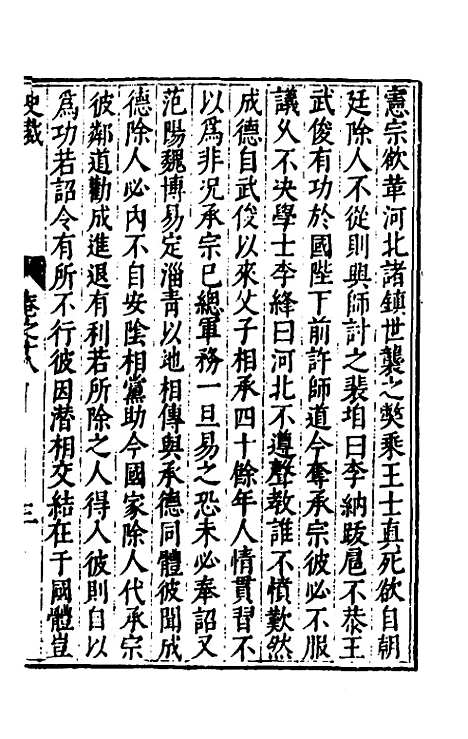 憲宗欲革河北諸鎮世襲之獘乘王士真死欲自朝
廷除人不從則興師討之裴垍曰李納跋扈不恭王
武俊有功於國陛下前許師道今奪承宗彼必不服
議久不決學士李絳曰河北不遵聲教誰不憤歎然
成德自武俊以來父子相承四十餘年人情貫習不
以爲非况承宗已總軍務一旦易之恐未必奉詔又
范陽魏博易定淄青以地相傳與承德同體彼聞成
德除人必内不自安陰相黨助今國家除人代承宗
彼鄰道勸成進退有利若所除之人得人彼則自以
爲功若詔令有所不行彼因潜相交結在于國體豈
史
卷之
三